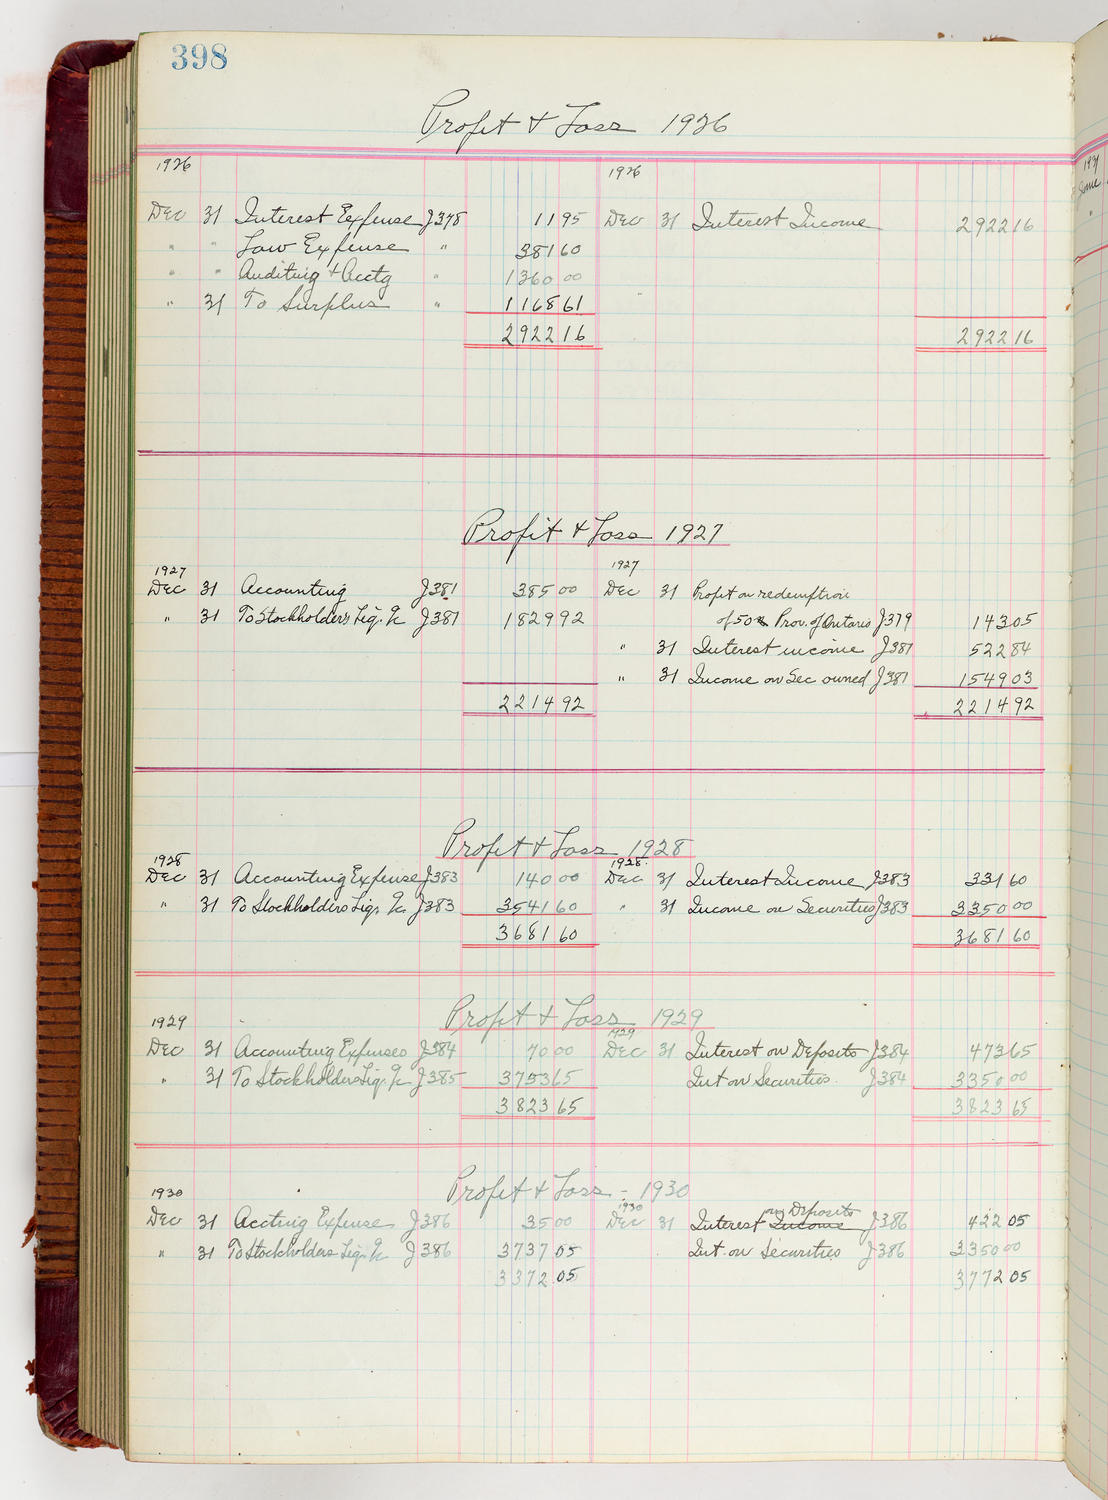 398
Profit & Loss 1926
1926 1926
Dec 31 Interest Expense J378 11 95 Dec 31 Interest Income 2922 16
" " Law Expense " 381 60
" " Auditing & Acctg " 1360 00
" 31 To Surplus " 1168 61
2922 16 2922 16
Profit & Loss 1927
1927 1927
Dec 31 Accounting J381 385 00 Dec 31 Profit on redemption
" 31 To Stockholders Liq. % J381 1829 92 of 50 Prov. of Ontario J379 143 05
" 31 Interest income J381 522 84
" 31 Income on Sec owned J381 1549 03
2214 92 2214 92
Profit & Loss 1928
1928 1928
Dec 31 Accounting Expense J383 140 00 Dec 31 Interest Income J383 331 60
" 31 To Stockholders Liq. % J383 3541 60 " 31 Income on Securities J383 3350 00
3681 60 3681 60
Profit & Loss 1929
1929 1929
Dec 31 Accounting Expenses J384 70 00 Dec 31 Interest on Deposits J384 473 65
" 31 To Stockholders Liq. % J385 3753 65 Int on Securities. J384 3350 00
3823 65 3823 65
Profit & Loss - 1930
1930 1930
on Deposits
Dec 31 Accting Expense J386 35 00 Dec 31 Interest Income J386 422 05
" 31 To Stockholders Liq. % J386 3737 05 Int. on Securities J386 3350 00
3372 05 3772 05
1931
June
"